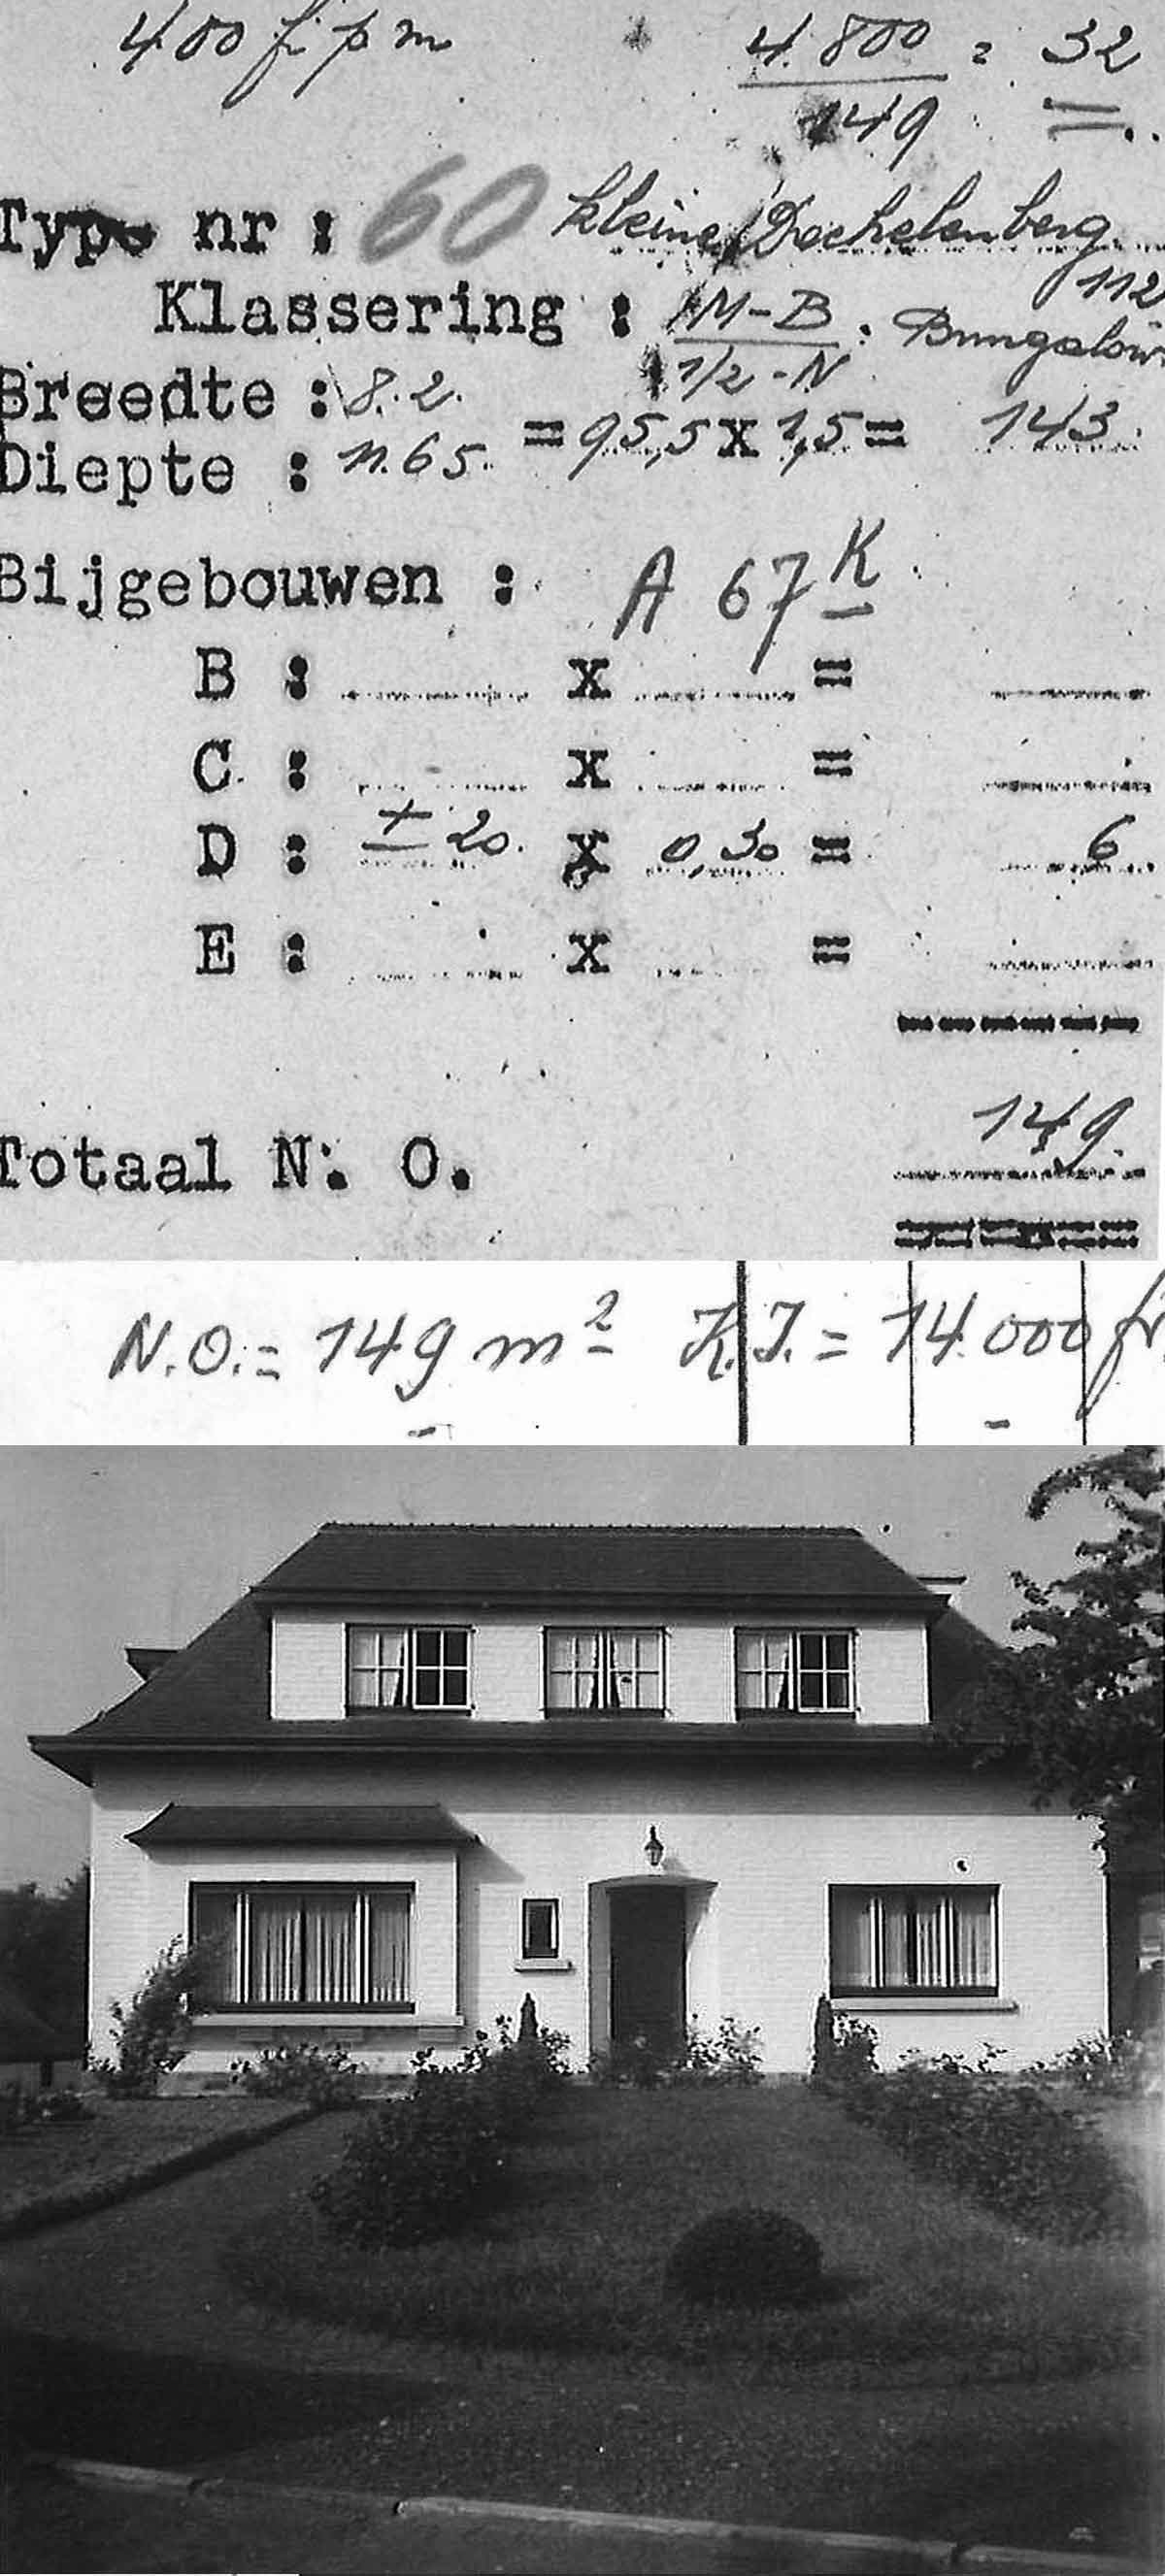 400 fr p m 4.800 = 32
149
Type nr : 60 kleine Dochelenberg
112
Klassering : M-B : Bungalow
1/2-N
Breedte : 8.2.
= 95,5 x 1,5 = 143
Diepte : 11.65.
Bijgebouwen : A 67 K
B : x =
C : x =
D : ± 20. x 0,30 = 6
E : x =
149.
Totaal N. O.
N.O. = 149 m² K.I. = 14.000 fr